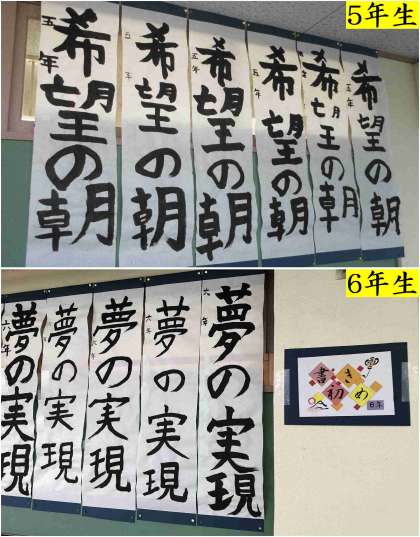 5年生
希望の朝
五年
希望の朝
五年
希望の朝
五年
希望の朝
五年
希望の朝
五年
希望の朝
五年
6年生
夢の実現
六年
夢の実現
六年
夢の実現
六年
夢の実現
六年
夢の実現
六年
書き初め
6年